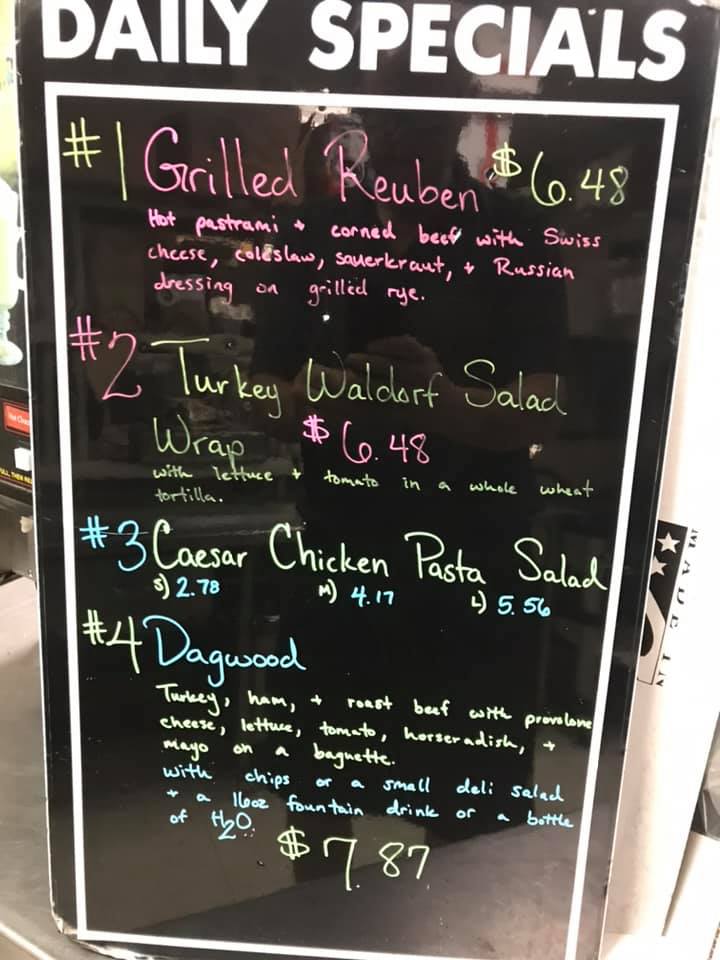 DAILY SPECIALS
#1 Grilled Reuben $6.48
Hot pastrami + corned beef with Swiss
cheese, coleslaw, sauerkraut, + Russian
dressing on grilled rye.
#2 Turkey Waldorf Salad
Wrap $6.48
with lettuce + tomato in a whole wheat
tortilla.
#3 Caesar Chicken Pasta Salad
S) 2.78 M) 4.17 L) 5.56
#4 Dagwood
Turkey, ham, + roast beef with provolone
cheese, lettuce, tomato, horseradish, +
mayo on a baguette.
with chips or a small deli salad
+ a 16oz fountain drink or a bottle
of H2O.
$7.87
MADE IN